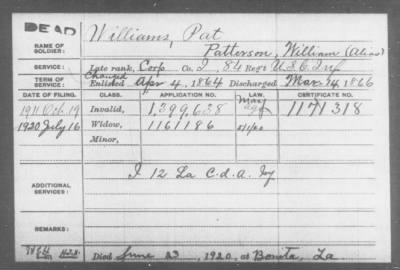 DEAD
Williams, Pat
NAME OF SOLDIER: Patterson, William (Alias)
SERVICE: Late rank, Corp Co. I, 84 Reg't U.S.C. Inf
TERM OF SERVICE: Enlisted Apr 4, 1864 Discharged Mar 14, 1866
DATE OF FILING. CLASS. APPLICATION NO. LAW. CERTIFICATE NO.
1911 Oct. 19 Invalid, 1,399,638 1171318
1920 July 16 Widow, 1161186
Minor,
ADDITIONAL SERVICES: I 12 La C.d.A. Inf
REMARKS:
Died June 23, 1920, at Bonita, La